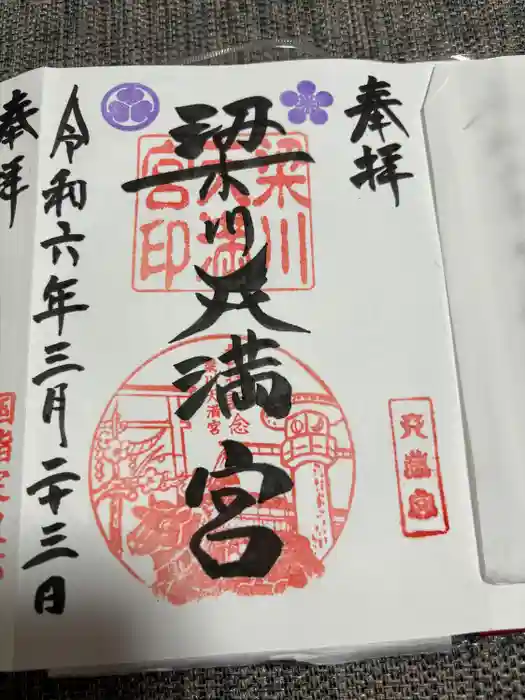 奉拝
梁川天満宮
令和六年三月二十三日
梁川
天満
宮印
念
梁川天満宮
天満宮
奉拝